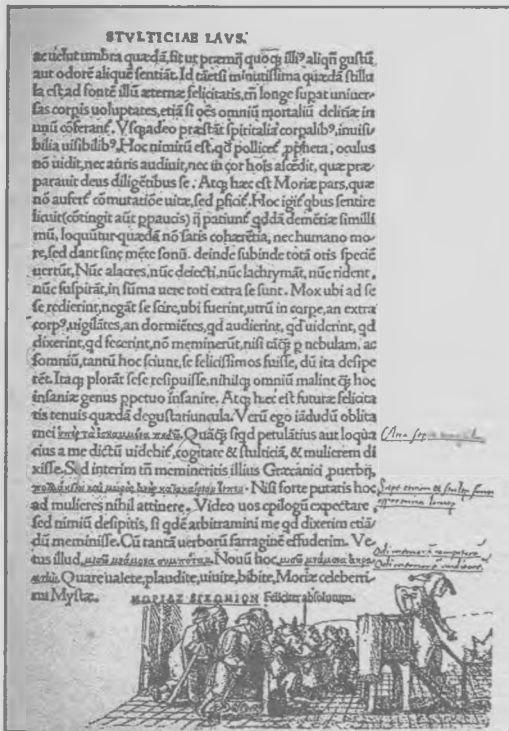 STVLTICIAE LAVS.
ac uelut umbra quædã, fit ut præmij quoq; illiꝰ aliqñ gustũ
aut odorẽ aliquẽ sentiãt. Id tãetsi minutissima quædã stillu
la est ad fontẽ illũ æternæ felicitatis, tñ longe supat uniuer-
sas corpis uoluptates, etiã si oẽs omniũ mortaliũ delitiæ in
unũ cõferant᷑. Vsqadeo præstãt spiritalia corpalibꝰ, inuisi-
bilia uisibilibꝰ. Hoc nimirũ est, qd pollicet᷑ ꝓpheta, oculus
nõ uidit, nec auris audiuit, nec in cor hoĩs ascẽdit, quæ præ
parauit deus diligẽtibus se. Atq; hæc est Moriæ pars, quæ
nõ aufert᷑ cõmutatiõe uitæ, sed ꝑficit᷑. Hoc igit᷑ qbus sentire
licuit (cõtingit aũt ꝑpaucis) ij patiunt᷑ qddã demẽtiæ simillì
mũ, loquũtur quædã nõ satis cohærẽtia, nec humano mo-
re, sed dant sine mẽte sonũ. deinde subinde totã oris speciẽ
uertũt, Nũc alacres, nũc deiecti, nũc lachrymãt, nũc rident,
nũc suspirãt, in sũma uere toti extra se sunt. Mox ubi ad se
se redierint, negãt se scire, ubi fuerint, utrũ in corpe, an extra
corpꝰ, uigilãtes, an dormiẽtes, qd audierint, qd uiderint, qd
dixerint, qd fecerint, nõ meminerũt, nisi tãq̃ ꝑ nebulam, ac
somniũ, tantũ hoc sciunt, se felicissimos fuisse, dũ ita desipe
rẽt. Itaq; plorãt sese resipuisse, nihilq; omniũ malint q̃ hoc
insaniæ genus ꝑpetuo insanire. Atq; hæc est futuræ felicita
tis tenuis quædã degustatiuncula. Verũ ego iãdudũ oblita
mei ὑπὲρ τὰ ἐσκαμμένα πηδῶ. Quãq̃ siqd petulãtius aut loqua
cius a me dictũ uidebit᷑, cogitate & stulticiã, & mulierem di
xisse. Sed interim tñ memineritis illius Græcanici ꝓuerbij,
πολλάκι τοι καὶ μωρὸς ἀνὴρ κατακαίριον εἶπε. Nisi forte putatis hoc
ad mulieres nihil attinere. Video uos epilogũ expectare,
sed nimiũ desipitis, si qdẽ arbitramini me qd dixerim etiã
dũ meminisse. Cũ tantã uerborũ farraginẽ effuderim. Ve-
tus illud, μισῶ μνάμονα συμπόταν. Nouũ hoc, μισῶ μνάμονα ἀκρο-
ατήν. Quare ualete, plaudite, uiuite, bibite, Moriæ celeberri-
mi Mystæ.
ΜΩΡΙΑΣ ΕΓΚΩΜΙΟΝ Feliciter absolutum.
Odi memorẽ compotorẽ
Odi memorẽ auditorẽ